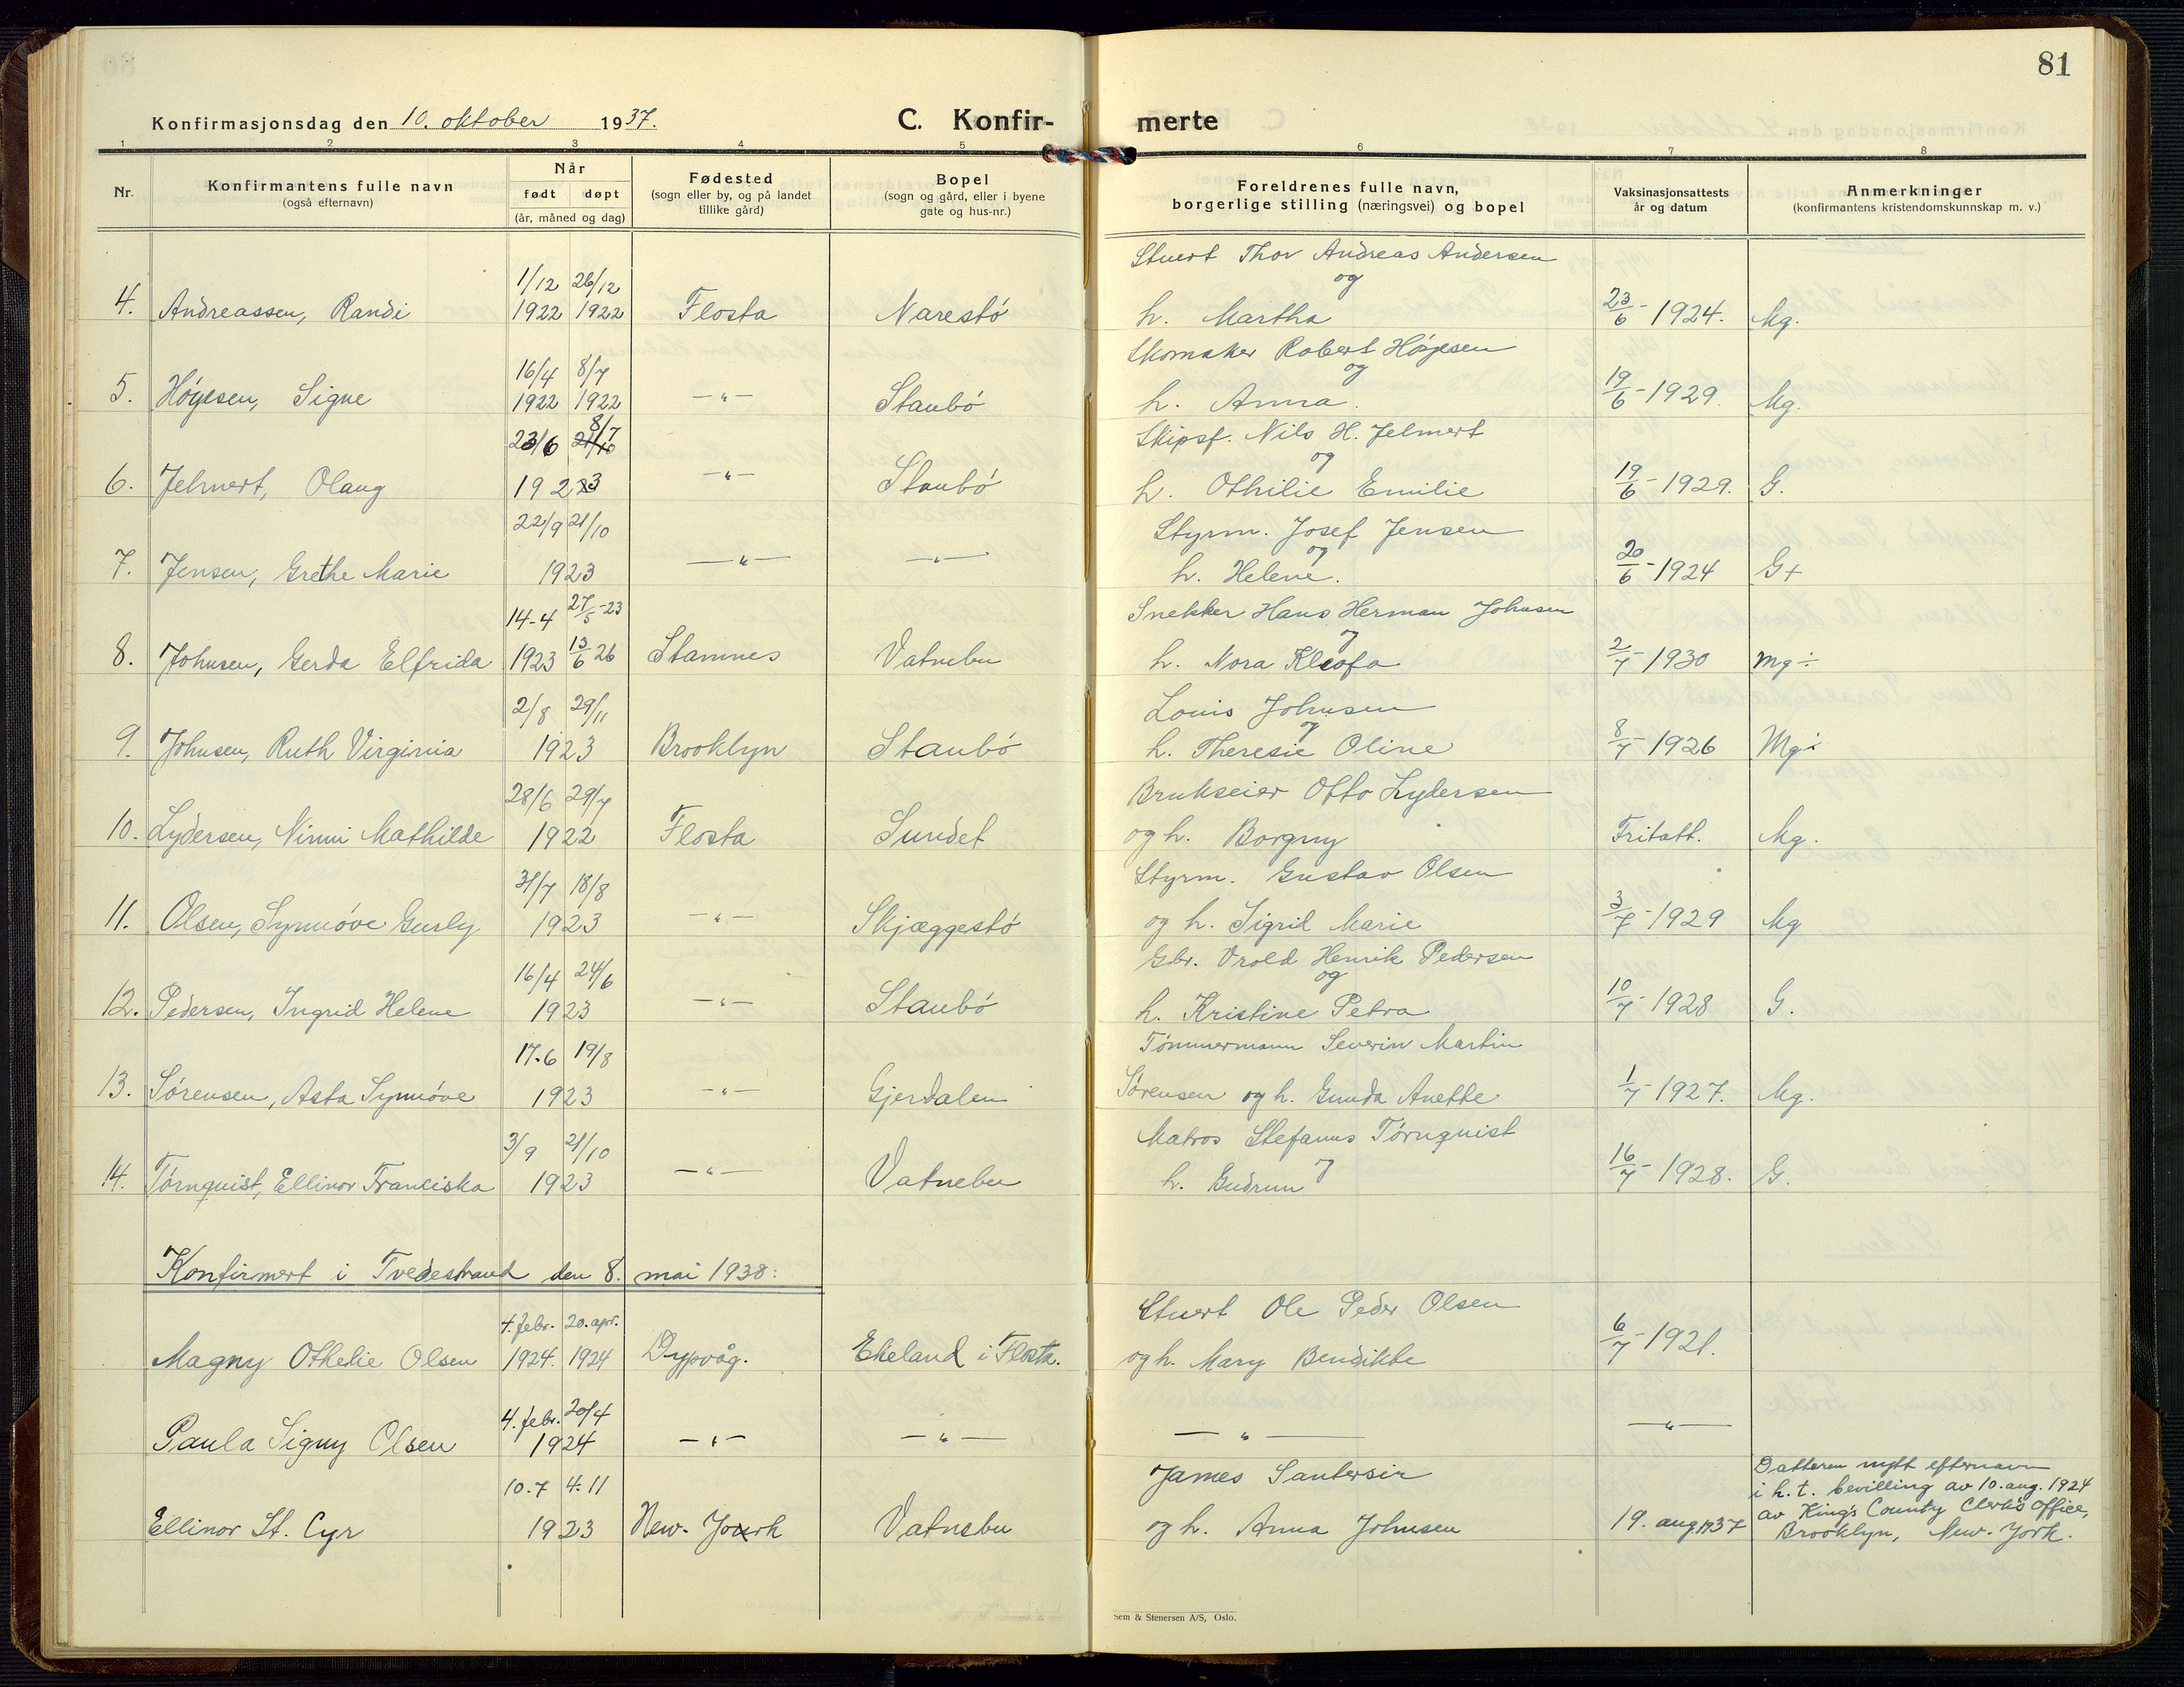 81
Konfirmasjonsdag den 10. oktober 1937.
C. Konfir-
merte
1 2 3 4 5 6 7 8
Nr.
Konfirmantens fulle navn
(også efternavn)
Når
født døpt
(år, måned og dag)
Fødested
(sogn eller by, og på landet
tillike gård)
Bopel
(sogn og gård, eller i byene
gate og hus-nr.)
Foreldrenes fulle navn,
borgerlige stilling (næringsvei) og bopel
Vaksinasjonsattests
år og datum
Anmerkninger
(konfirmantens kristendomskunnskap m. v.)
Stuert Thor Andreas Andersen
1/12 26/12 og
4. Andreassen, Randi 1922 1922 Flosta Narestø h. Martha 23/6 - 1924. Mg.
Skomaker Robert Høyesen
16/4 8/7 og
5. Høyesen, Signe 1922 1922 — " — Staubø h. Anna. 19/6 - 1929. Mg.
8/7 Skipsf. Nils H. Jelmert
23/6 21/10 og
6. Jelmert, Olaug 1923 — " — Staubø h. Othilie Emilie 19/6 - 1929. G.
22/9 21/10 Styrm. Josef Jensen
og
7. Jensen, Grethe Marie 1923 — " — — " — h. Helene. 20/6 - 1924 G+
14-4 27/5-23 Snekker Hans Herman Johnsen
og
8. Johnsen, Gerda Elfrida 1923 13/6 26 Stamnes Vatnebu h. Nora Kleofa 2/7 - 1930 Mg÷
2/8 29/11 Louis Johnsen
og
9. Johnsen, Ruth Virginia 1923 Brooklyn Staubø h. Theresie Oline 8/7 - 1926 Mg÷
28/6 29/7 Brukseier Otto Lydersen
10. Lydersen, Ninni Mathilde 1922 Flosta Sundet og h. Borgny Fritatt. Mg.
31/7 18/8 Styrm. Gustav Olsen
11. Olsen, Synnøve Gurly 1923 — " — Skjæggestø og h. Sigrid Marie 3/7 - 1929 Mg
16/4 24/6 Gbr. Vrold Henrik Pedersen
og
12. Pedersen, Ingrid Helene 1923 — " — Staubø h. Kristine Petra 10/7 - 1928 G.
17.6 19/8 Tømmermann Severin Martin
13. Sørensen, Asta Synnøve 1923 — " — Gjerdalen Sørensen og h. Gunda Anette 1/7 - 1927. Mg.
3/9 21/10 Matros Stefanus Tørnquist
og
14. Tørnquist, Ellinor Franciska 1923 — " — Vatnebu h. Gudrun 16/7 - 1928. G.
Konfirmert i Tvedestrand den 8. mai 1938:
4. febr. 20. apr. Stuert Ole Peder Olsen
Magny Othelie Olsen 1924. 1924 Dypvåg. Ekeland i Flosta. og h. Mary Bendikte 6/7 - 1921.
4. febr. 20/4
Paula Signy Olsen 1924 — " — — " — — " — — " —
10.7 4.11 James Santersir
Ellinor St. Cyr 1923 New-York Vatnebu og h. Anna Johnsen 19. aug 1937
Datteren nytt efternavn
i h. t. bevilling av 10. aug. 1924
av King's County Clerk's Office,
Brooklyn, New-York.
Sem & Stenersen A/S, Oslo.